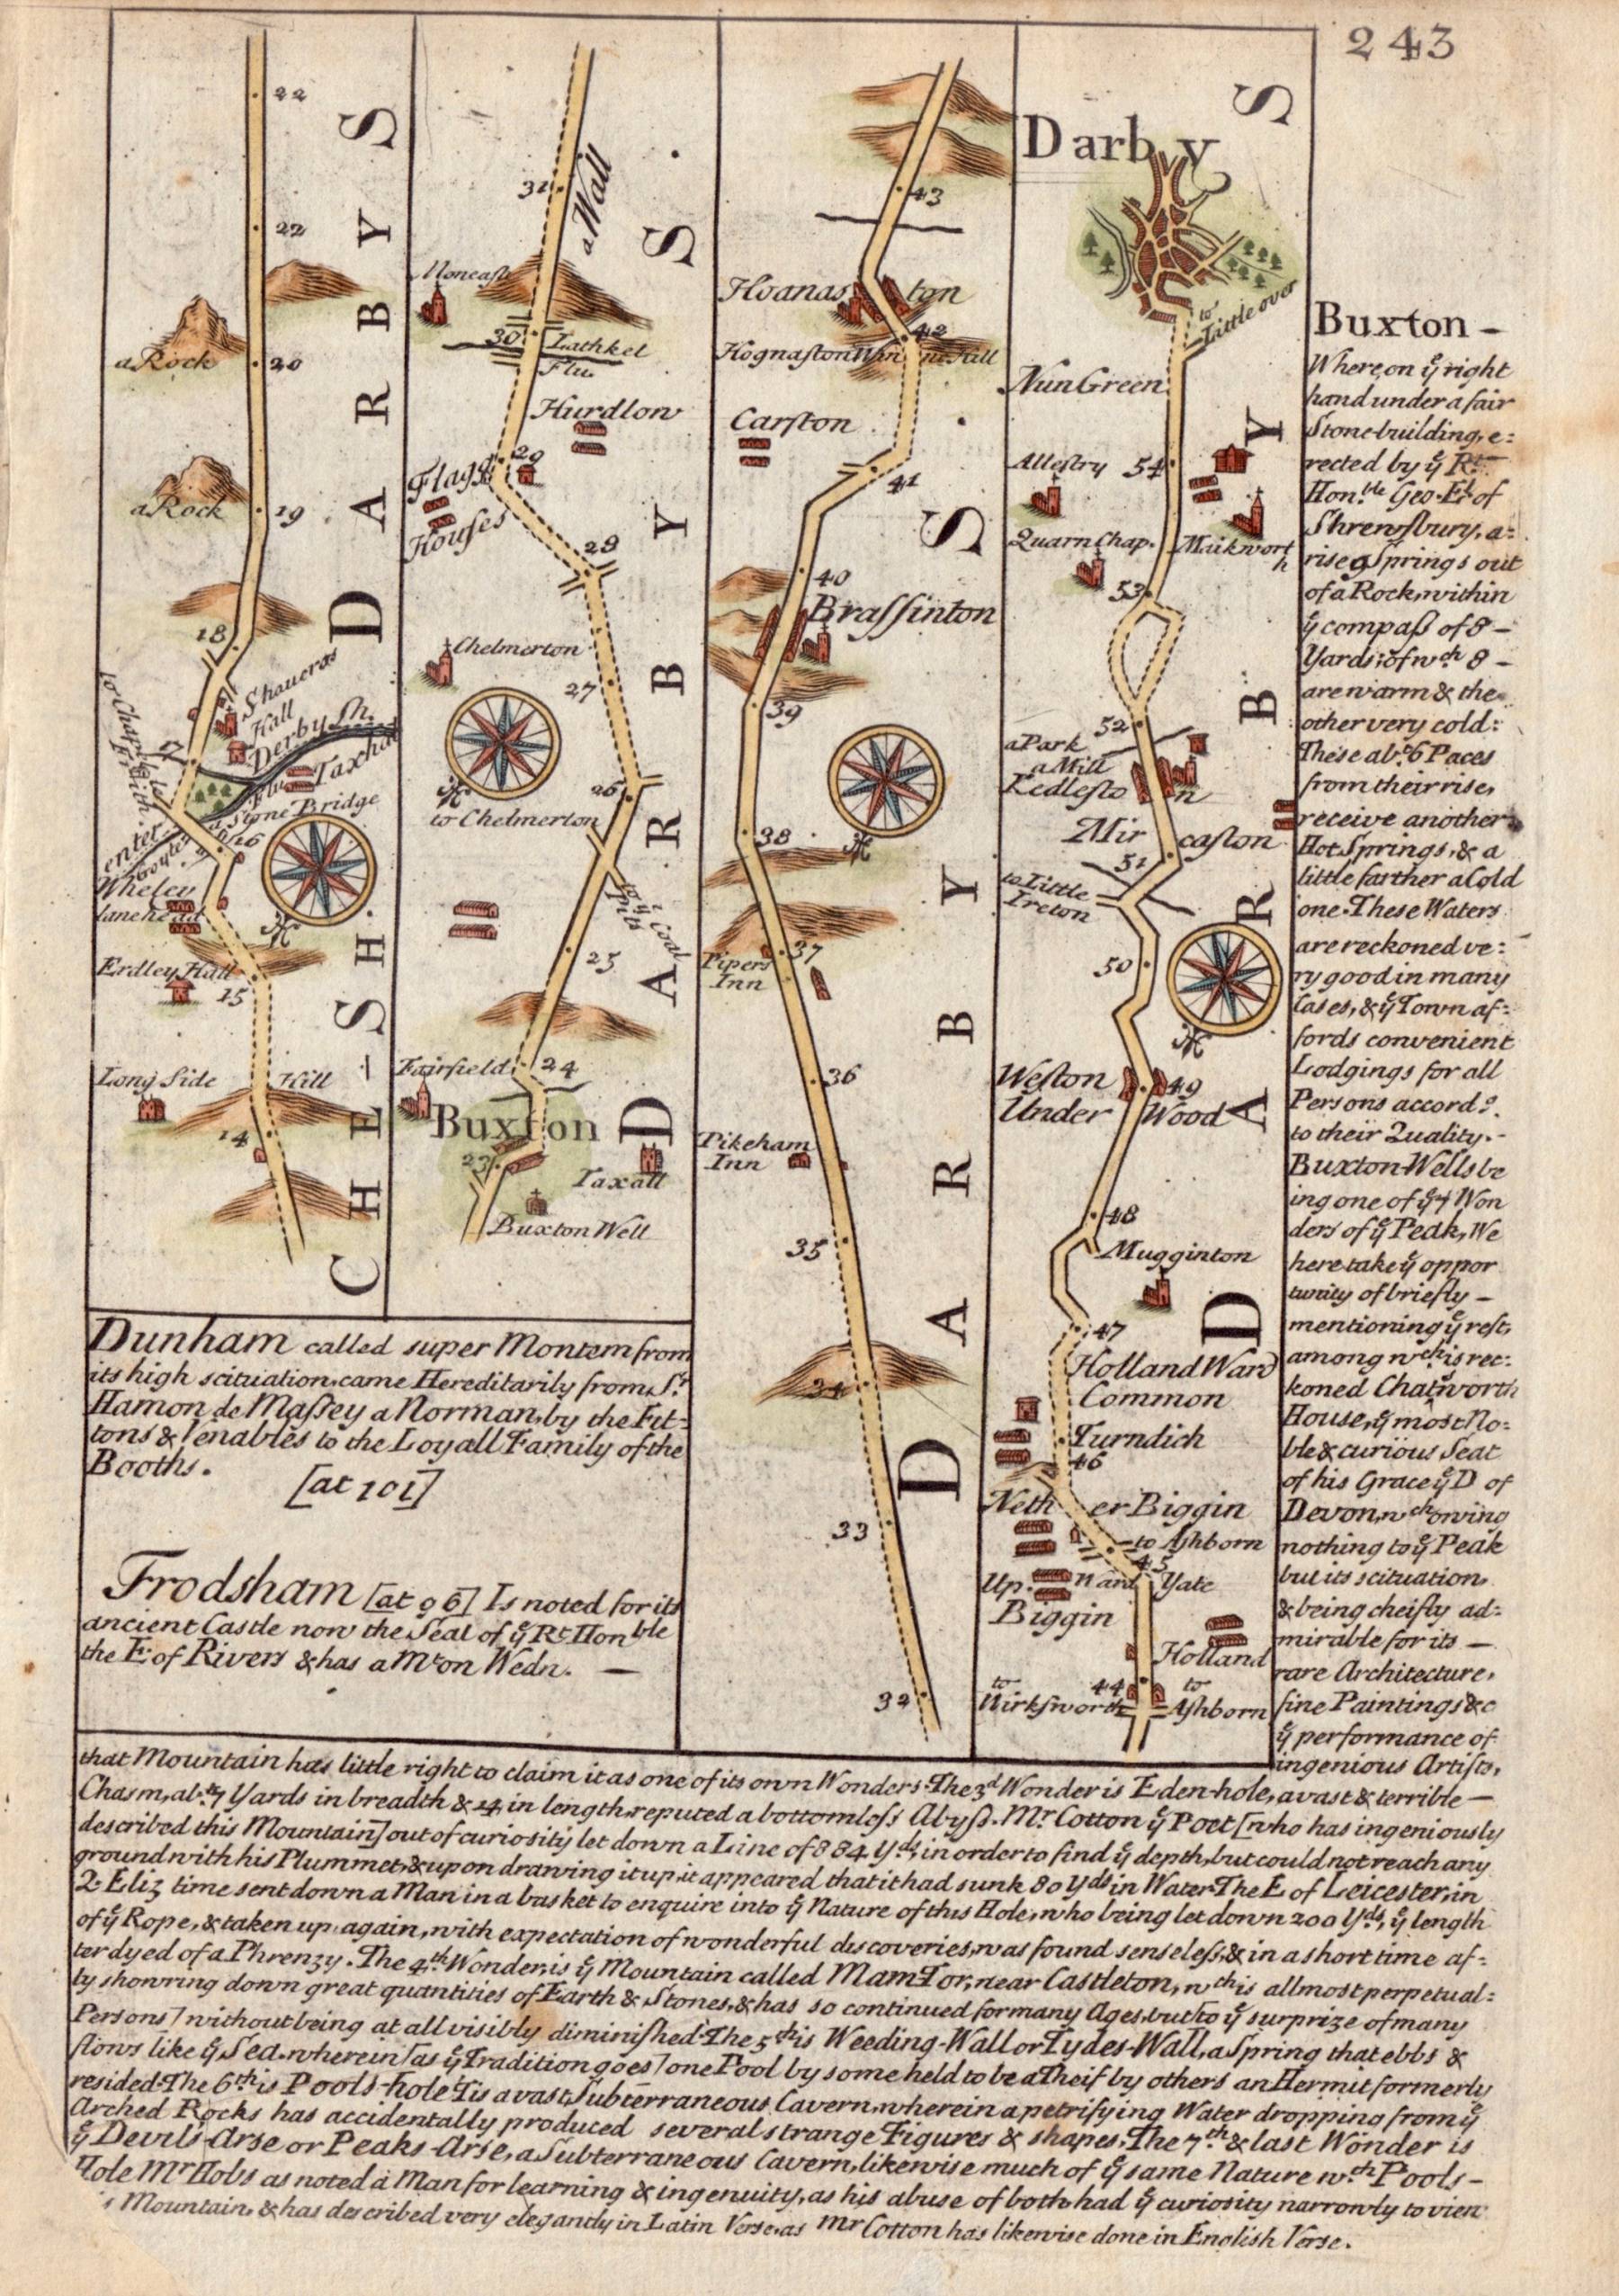 243
22
22
a Rock
20
a Rock
19
18
Shaucros
Hall
to Chappel le
Frith
17
Derby Sh.
Flu.
Taxhal
a Stone Bridge
enter
Goyte
16
Wheley
lane head
Erdley Hall
15
Long Side Hill
14
CHE-SH.
DARBYS
31
a Wall
Moneash
30
Lathkel
Flu.
Hurdlow
29
Flagg
Houses
28
Chelmerton
27
26
to Chelmerton
to ye Coal
Pits
25
Fairfield
24
Buxton
23
Taxall
Buxton Well
DARBYS.
43
Hoanaston
42
Hognaston Winn Hill
Carston
41
40
Brassinton
39
38
37
Pipers
Inn
36
Pikeham
Inn
35
34
33
32
DARBYS.
Darby
to
Little over
Nun Green
Allestry
54
Quarn Chap.
Maikworth
53
52
a Park
a Mill
Kedleston
Mircaston
51
to Little
Ireton
50
Weston
49
Under Wood
48
Mugginton
47
Holland Ward
Common
Turndich
46
Nether Biggin
to Ashborn
45
Up.
Ward Yate
Biggin
Holland
to
44
to
Wirksworth
Ashborn
DARBYS
Buxton -
Where, on ye right
hand under a fair
Stone building, e:
rected by ye Rt.
Hon.ble Geo. E.l of
Shrewsbury, a:
rise 9 Springs out
of a Rock, within
ye compass of 8 -
Yards; of wch 8 -
are warm & the
other very cold:
These abt. 6 Paces
from their rise,
receive another
Hot Springs, & a
little farther a Cold
one. These Waters
are reckoned ve:
ry good in many
Cases, & ye Town af:
fords convenient
Lodgings for all
Persons accord.g
to their Quality. -
Buxton-Wells be
ing one of ye 7 Won
ders of ye Peak, We
here take ye oppor
tunity of briefly -
mentioning ye rest,
among wch is rec:
koned Chatworth
House, ye most No:
ble & curious Seat
of his Grace ye D of
Devon, wch owing
nothing to ye Peak
but its scituation,
& being cheifly ad:
mirable for its -
rare Architecture,
fine Paintings &c
ye performance of
ingenious Artists,
Dunham called super Montem from
its high scituation, came Hereditarily from Sr.
Hamon de Massey a Norman, by the Fit:
tons & Venables to the Loyall Family of the
Booths.
[at 101]
Frodsham [at 96] Is noted for its
ancient Castle now the Seat of ye Rt. Honble
the E. of Rivers & has a Mt. on Wedn. -
that Mountain has little right to claim it as one of its own Wonders. The 3d Wonder is Eden-hole, a vast & terrible -
Chasm, abt. 7 Yards in breadth & 14 in length, reputed a bottomless Abyss. Mr. Cotton ye Poet [who has ingeniously
described this Mountain] out of curiosity let down a Line of 884 Yds. in order to find ye depth, but could not reach any
ground with his Plummet, & upon drawing it up, it appeared that it had sunk 80 Yds in Water. The E of Leicester, in
Q. Eliz time sent down a Man in a basket to enquire into ye Nature of this Hole, who being let down 200 Yds. ye length
of ye Rope, & taken up again, with expectation of wonderful discoveries, was found senseless, & in a short time af:
ter dyed of a Phrenzy. The 4th. Wonder, is ye Mountain called Mam-Tor, near Castleton, wch is allmost perpetual:
ly showring down great quantities of Earth & Stones, & has so continued for many Ages, but [to ye surprize of many
Persons] without being at all visibly diminished. The 5th is Weeding-Wall or Tydes-Wall, a Spring that ebbs &
flows like ye Sea. wherein [as ye Tradition goes] one Pool by some held to be a Theif by others an Hermit formerly
resided. The 6th is Pools-hole 'Tis a vast Subterraneous Cavern, wherein a petrifying Water dropping from ye
Arched Rocks has accidentally produced several strange Figures & shapes. The 7th & last Wonder is
ye Devils-Arse or Peaks-Arse, a Subterraneous Cavern, likewise much of ye same Nature wth Pools-
Hole Mr Hobs as noted a Man for learning & ingenuity, as his abuse of both, had ye curiosity narrowly to view
Mountain, & has described very elegantly in Latin Verse, as Mr Cotton has likewise done in English Verse.